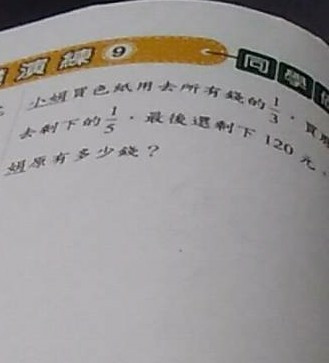 演練 9
同學
小娟買色紙用去所有錢的 1/3，買
去剩下的 1/5，最後還剩下 120 元，
娟原有多少錢？